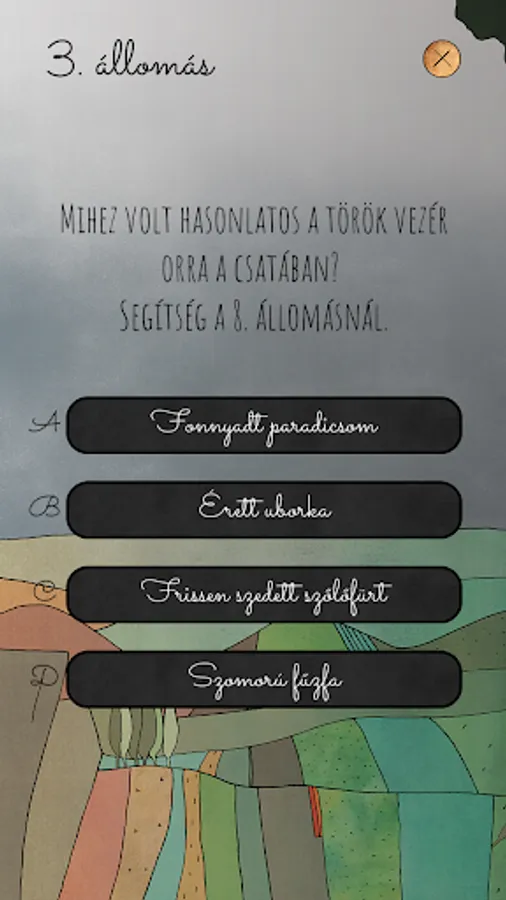 3. állomás
Mihez volt hasonlatos a török vezér
orra a csatában?
Segítség a 8. állomásnál.
A Fonnyadt paradicsom
B Érett uborka
C Frissen szedett szőlőfürt
D Szomorú fűzfa